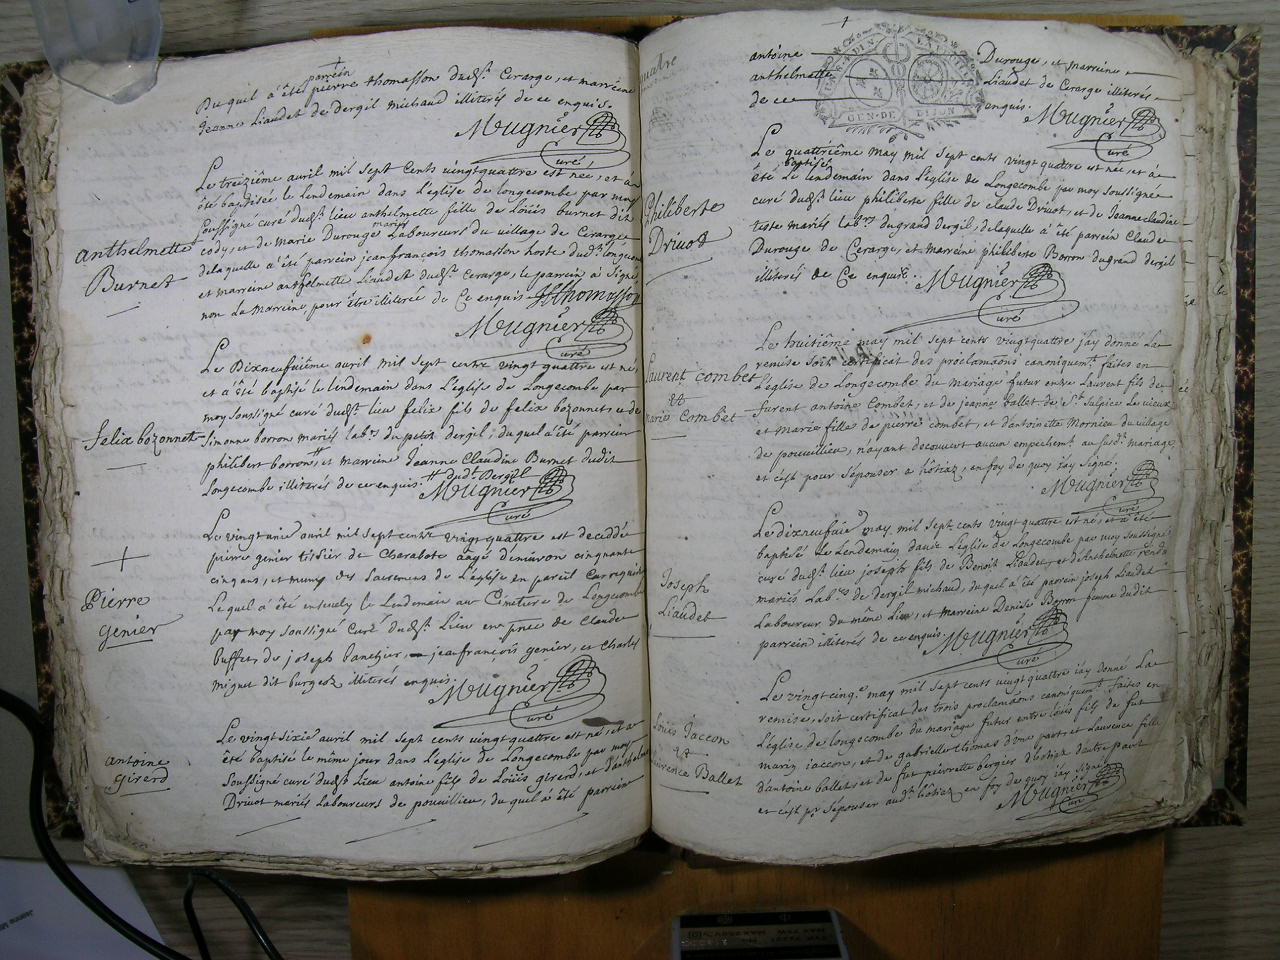 Duquel a été pierre thomasson dud.t Cerarge, et marreine
parrein
Jeanne Liaudet de dergil michaud illiterés de ce enquis.
Mugnier
Curé
Le treizième avril mil sept Cents vingtquattre est née, et à
été baptisée le lendemain dans L'église de Longecombe par moy
soussigné curé dud.t lieu anthelmette fille de Loüis burnet dit
cody, et de marie Durouge mariés Laboureurs du village de Cerarge
delaquelle a été parrein jeanfrançois thomasson hoste dud.t longecombe
et marreine anthelmette Liaudet dud.t Cerarge, le parrein a signé
non la marreine pour être illiterée de Ce enquis JfThomasson
Mugnier
Curé
anthelmette
Burnet
Le Dixneufuième avril mil sept cents vingt quattre est né,
et a été baptisé le lendemain dans L'église de Longecombe par
moy soussigné curé dud.t lieu felix fils de felix bozonnet et de
Simonne borron mariés lab.rs du petit dergil, duquel a été parrein
philibert borron, et marreine Jeanne Claudine Burnet dudit
Longecombe illiterés de ce enquis. dud.t Dergil
Mugnier
Curé
felix bozonnet
Le vingtunie avril mil sept cents vingt quattre est decedé
pierre genier tissier de Charabote angé d'environ cinquante
cinq ans, et muny des sacremens de L'église en pareil cas requis
Lequel a été ensevely le Lendemain au Cimetiere de Longecombe
par moy soussigné Curé dud.t Lieu en pnce de Claude
buffet, de joseph jeanfrançois genier, et Charles
mignet dit burgoz illiterés enquis.
Mugnier
Curé
Pierre
genier
Le vingt sixie avril mil sept cents vingt quattre est né, et a
été baptisé le même jour dans L'église de Longecombe par moy
soussigné curé dud.t Lieu antoine fils de Loüis girerd, et d'anthelmette
Drivot mariés Laboureurs de pouvillieu, duquel a été parrein
antoine
girerd
antoine Durouge, et marreine
anthelmette Liaudet de Cerarge illiterés
de ce enquis.
Mugnier
Curé
GEN. DE DIJON
Le quattrième may mil sept cents vingt quattre est née, et à
été baptisée Le lendemain dans L'église de Longecombe par moy soussigné
curé dud.t lieu philiberte fille de claude Drivot, et de Jeanneclaudine
teste mariés lab.rs du grand dergil, delaquelle a été parrein Claude
Durouge de Cerarge, et marreine philiberte Borron du grand dergil
illiterés de Ce enquis.
Mugnier
Curé
Philiberte
Drivot
Le huitième may mil sept cents vingtquattre j'ay donné La
remise soit certificat des proclamaons canoniquem.t faites en
L'église de Longecombe du mariage futur entre Laurent fils de
furent antoine Combet, et de jeanne ballet de S.t Sulpice Le vieux
et Marie fille de pierre combet, et d'antoinette Mornieu du village
de pouvillieu, n'ayant decouvert aucun empechem.t au susd.t mariage,
et c'est pour s'épouser a hôtiaz, en foy de quoy j'ay signé.
Mugnier
Curé
Laurent combet
&
Marie Combet
Le dixneufuie may mil sept cents vingt quattre est né, et a été
baptisé Le Lendemain dans L'église de Longecombe par moy soussigné
curé dud.t lieu joseph fils de Benoit Liaudet, et d'Anthelmette rendu
mariés Lab.rs de dergil michaud, duquel a été parrein joseph Liaudet
Laboureur du même Lieu, et marreine Denise Borron femme dudit
parrein illiterés de ce enquis.
Mugnier
Curé
Joseph
Liaudet
Le vingtcinq.e may mil sept cents vingt quattre j'ay donné La
remise, soit certificat des trois proclamaons canoniquem.t faites en
L'église de longecombe du mariage futur entre Louis fils de fut
marin jaccon, et de gabrielle thomas d'une part et Laurence fille
d'antoine ballet, et de fut pierrette bergier d'hotiaz d'autre part
et c'est p.r s'épouser aud.t hôtiaz, en foy de quoy j'ay signé
Mugnier
Curé
Louis Jaccon
&
Laurence Ballet